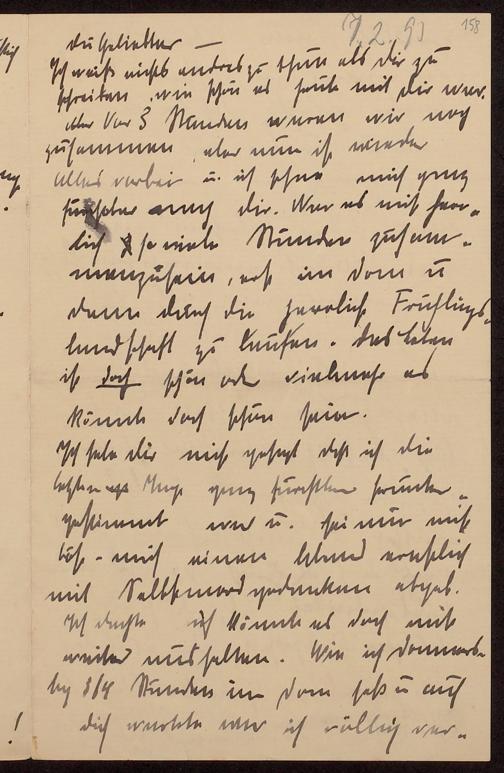 17.2.93 158
Du Geliebter —
Ich weiß nichts andres zu thun als dir zu
schreiben, wie schön es heute mit dir war.
Vor 3 Stunden waren wir noch
zusammen, aber nun ist wieder
alles vorbei u. ich sehne mich ganz
furchtbar nach dir. War es nicht herr-
lich so viele Stunden zusam-
menzusein, erst im Dom u
dann durch die herrliche Frühlings-
landschaft zu laufen. Das Leben
ist doch schön oder vielmehr es
könnte doch schön sein.
Ich habe dir nicht gesagt daß ich die
letzten Tage ganz furchtbar herunter-
gestimmt war u. sei mir nicht
bös - mich einen Abend ernstlich
mit Selbstmordgedanken abgab.
Ich dachte ich könnte es doch nicht
weiter aushalten. Wie ich Donners-
tag 3/4 Stunden im Dom saß u auf
dich wartete war ich völlig ver-